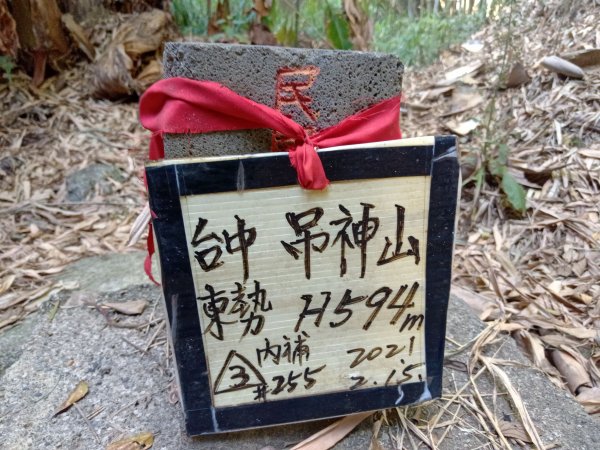 民
台中 吊神山
東勢 H594m
3 內補 2021.
#255 2.15.